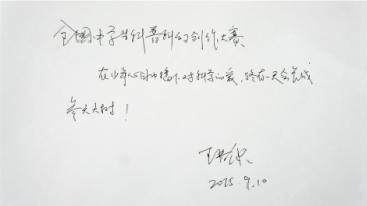 全国中学生科普科幻创作大赛
在少年心目中播下对科学的爱,终有一天会长成
参天大树!
王晋康
2025.9.10